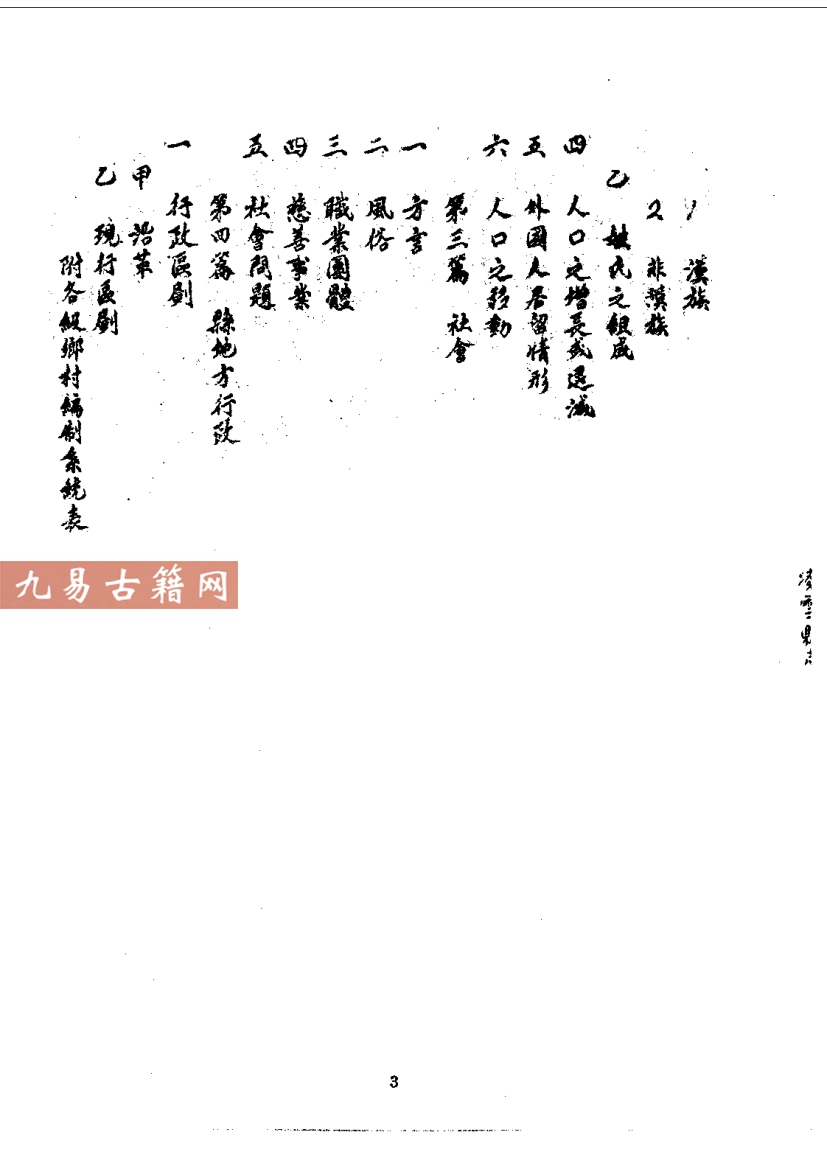 1 漢族
2 非漢族
乙 姓氏之組成
四 人口之增長或退減
五 外國人居留情形
六 人口之移動
第三篇 社會
一 方言
二 風俗
三 職業團體
四 慈善事業
五 社會問題
第四篇 縣地方行政
一 行政區劃
甲 沿革
乙 現行區劃
附各級鄉村編制系統表
九易古籍网
凌雲県志
3